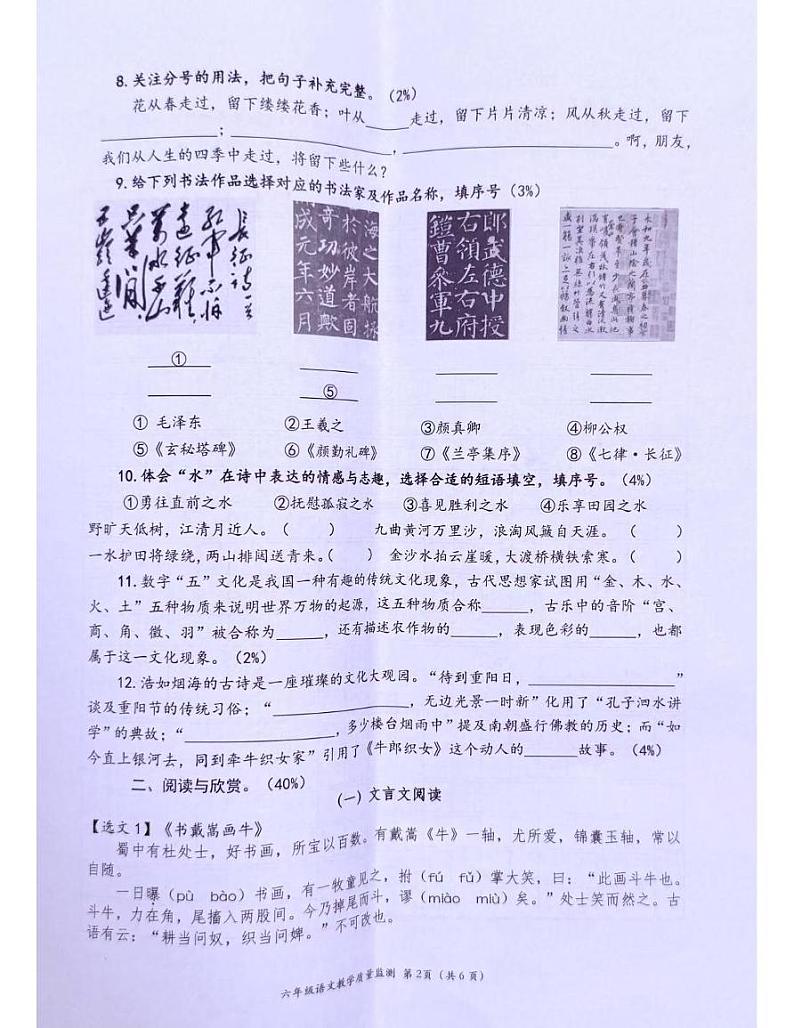 8.关注分号的用法，把句子补充完整。(2%)
花从春走过，留下缕缕花香；叶从____走过，留下片片清凉；风从秋走过，留下
____________；________________，______________________。啊，朋友，
我们从人生的四季中走过，将留下些什么？
9.给下列书法作品选择对应的书法家及作品名称，填序号(3%)
长征诗一首
红军不怕
远征难
万水千山
只等闲
五岭逶迤
海之大航拯
於彼岸者固
奇功妙道欤
成元年六月
郎武德中授
右领左右府
鎧曹参军九
①
⑤
① 毛泽东 ②王羲之 ③颜真卿 ④柳公权
⑤《玄秘塔碑》 ⑥《颜勤礼碑》 ⑦《兰亭集序》 ⑧《七律·长征》
10.体会“水”在诗中表达的情感与志趣，选择合适的短语填空，填序号。(4%)
①勇往直前之水 ②抚慰孤寂之水 ③喜见胜利之水 ④乐享田园之水
野旷天低树，江清月近人。（ ） 九曲黄河万里沙，浪淘风簸自天涯。（ ）
一水护田将绿绕，两山排闼送青来。（ ） 金沙水拍云崖暖，大渡桥横铁索寒。（ ）
11.数字“五”文化是我国一种有趣的传统文化现象，古代思想家试图用“金、木、水、
火、土”五种物质来说明世界万物的起源，这五种物质合称_____，古乐中的音阶“宫、
商、角、徵、羽”被合称为_____，还有描述农作物的_____，表现色彩的_____，也都
属于这一文化现象。(2%)
12.浩如烟海的古诗是一座璀璨的文化大观园。“待到重阳日，________________”
谈及重阳节的传统习俗；“________________，无边光景一时新”化用了“孔子泗水讲
学”的典故；“________________，多少楼台烟雨中”提及南朝盛行佛教的历史；而“如
今直上银河去，同到牵牛织女家”引用了《牛郎织女》这个动人的______故事。(4%)
二、阅读与欣赏。(40%)
(一) 文言文阅读
【选文1】《书戴嵩画牛》
蜀中有杜处士，好书画，所宝以百数。有戴嵩《牛》一轴，尤所爱，锦囊玉轴，常以
自随。
一日曝（pù bào）书画，有一牧童见之，拊（fú fǔ）掌大笑，曰：“此画斗牛也。
斗牛，力在角，尾搐入两股间。今乃掉尾而斗，谬（miào miù）矣。”处士笑而然之。古
语有云：“耕当问奴，织当问婢。”不可改也。
六年级语文教学质量监测 第2页（共6页）